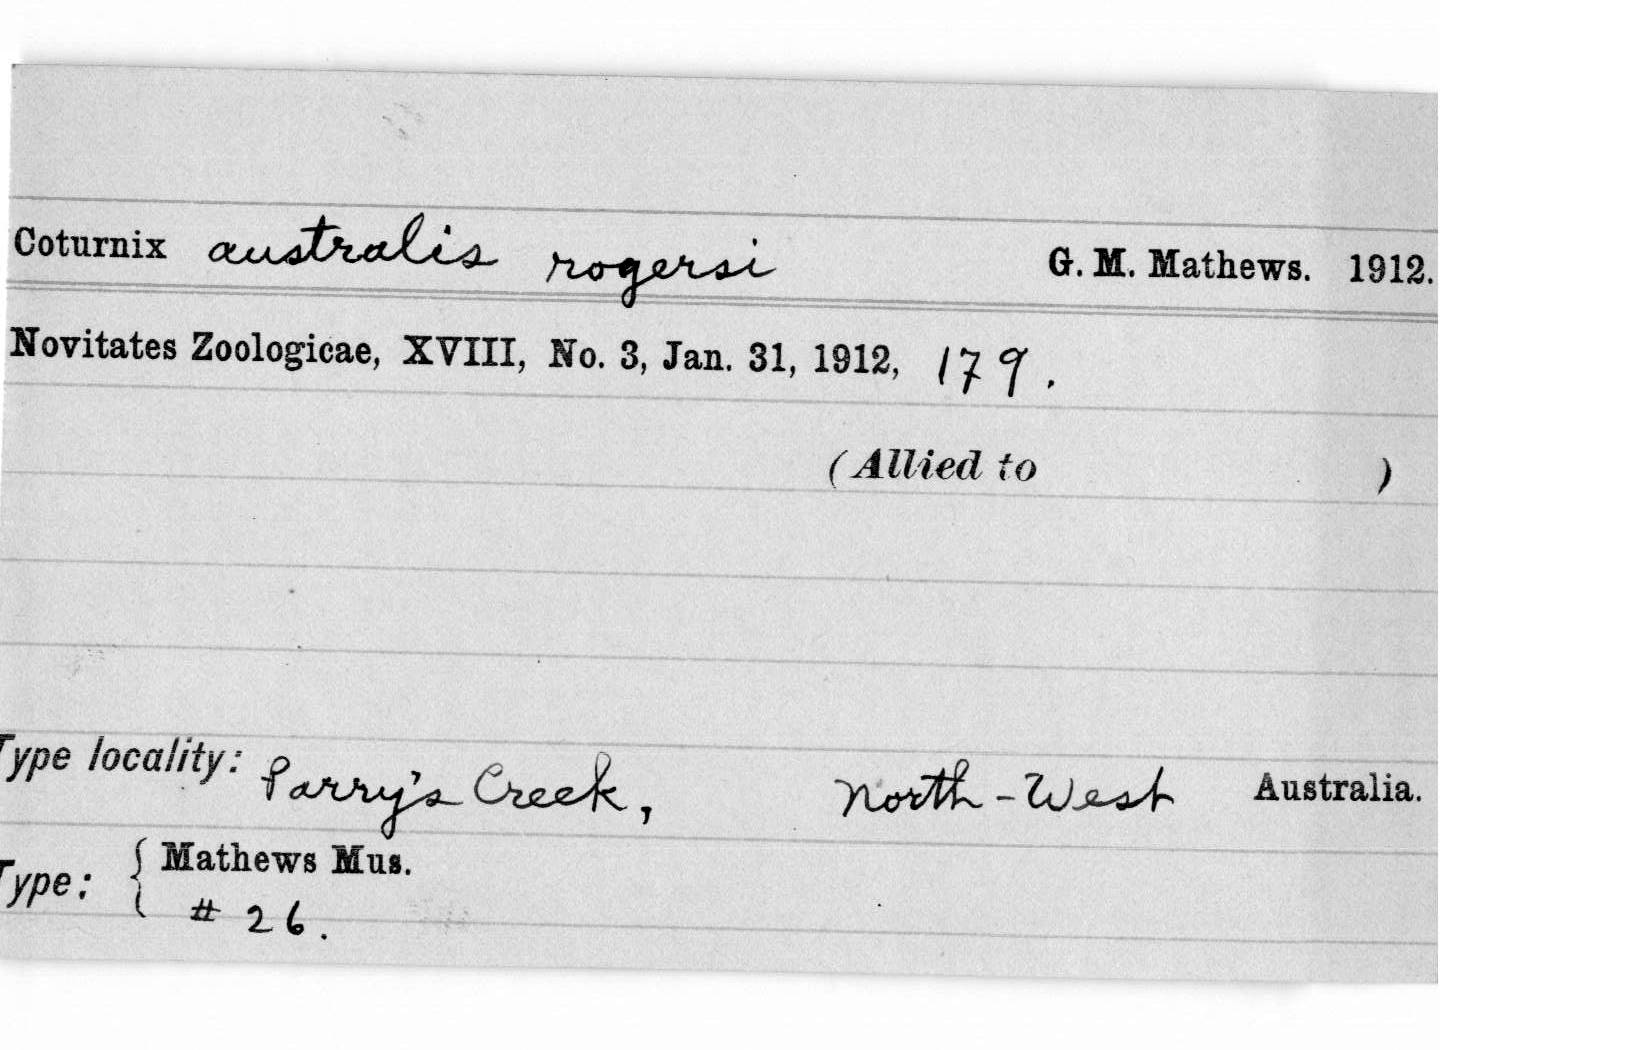 Coturnix australis rogersi G. M. Mathews. 1912.
Novitates Zoologicae, XVIII, No. 3, Jan. 31, 1912, 179.
(Allied to )
Type locality: Parry's Creek, North-West Australia.
Type: { Mathews Mus.
# 26.